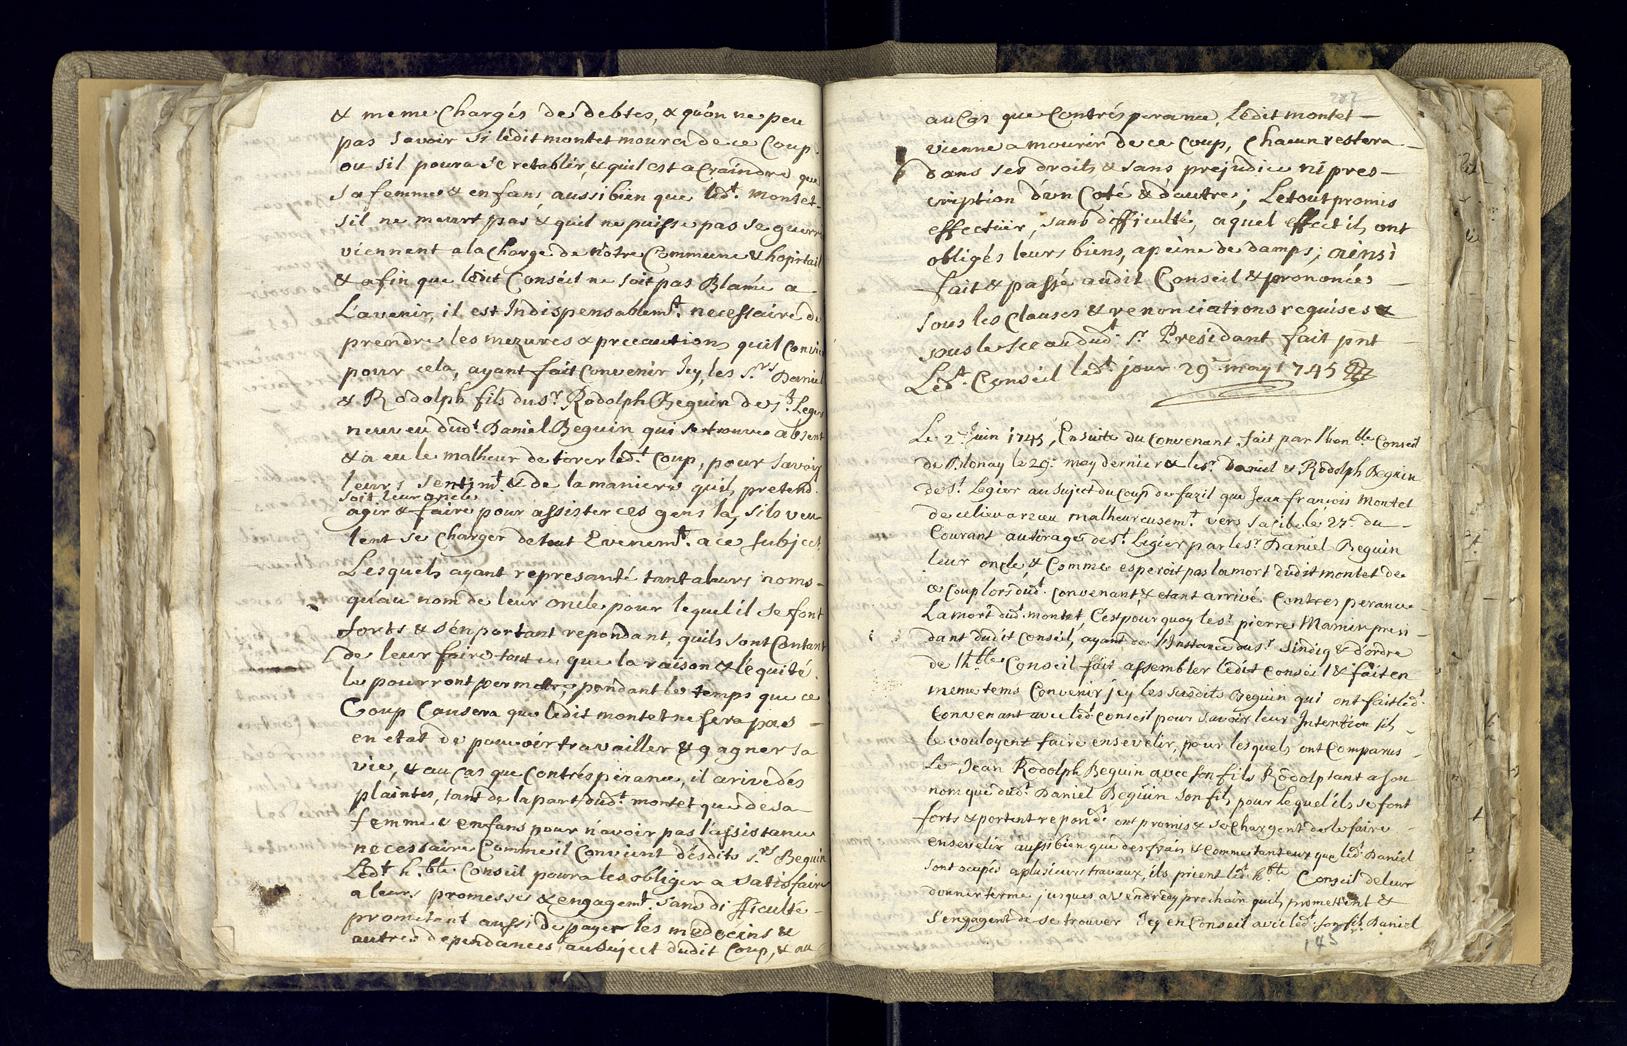 & meme Chargés de debtes, & qu'on ne peu
pas savoir si ledit montet moura de ce Coup.
ou sil poura se retablir, & quil est a Craindre que
sa femme & enfans, aussi bien que led.t montet
sil ne meurt pas & quil ne puisse pas se guerir
viennent a la Charge de notre Commune & hopitail
& afin que ledit Conséil ne soit pas Blamé a
L'avenir, il est Indispensablem.t necessaire de
prendre les mezures & precautions quil Convien
pour cela, ayant fait Convenir Icy, les S.rs Daniel
& Rodolph fils du S.r Rodolph Beguin de S.t Legier
neuveu dud.t Daniel Beguin qui se trouve absent
& a eu le malheur de tirer led.t Coup, pour savoir
leurs sentim.t & de la maniere quils pretend.
soit leur oncle
agir & faire pour assister ces gens la, sils veu-
lent se Charger de tout Evenem.t a ce subject
Lesquels ayant represanté tant a leurs noms-
qu'au nom de leur oncle pour lequel il se font
forts & s'en portant repondant, quils sont Contant
de leur faire tout ce que la raison & l'équité
le pourront permetre, pendant le temps que ce
Coup Causera que ledit montet ne sera pas -
en etat de pouvoir travailler & gagner sa
vie, & au Cas que Contrésperance, il arive des
plaintes, tant de la part dud.t montet que de sa
femme & enfans pour n'avoir pas l'assistance
necessaire Comme il Convient desdits S.rs Beguin
Led.t h.ble Conseil poura les obliger a satisfaire
a leurs promesses & engagem.t sans difficulté -
prometant aussi de payer les medecins &
autres dependances au sujet dudit Coup, & au
au Cas que Contrésperance, Ledit montet -
vienne a mourir de ce Coup, Chacun restera -
dans ses droits & sans prejudice ni pres-
cription d'un Coté & d'autre; Le tout promis
effectüer, sans difficulté, a quel effect ils ont
obligés leurs biens, a peine de damps; ainsi
fait & passé audit Conseil & prononcés -
sous les clauses & renonciations requises &
sous le sceau dud.t S.r Présidant fait pnt -
Led.t Conseil led.t jour 29.e may 1745
Le 2.e Juin 1745, Ensuite du Convenant fait par l'hon.ble Conseil
de Blonay le 29.e may dernier & les S.r Daniel & Rodolph Beguin
de S.t Legier au Sujet du Coup de fuzil que Jean françois Montet
de celieu a receu malheureusem.t vers sa cible le 27.e du -
Courant au tirage de S.t Legier par le S.r Daniel Beguin
leur oncle, & Comme esperoit pas la mort dudit montet de
ce Coup lors dud.t Convenant, & etant arrivé Contresperance
La mort dud.t montet, C'est pourquoy le S.r pierre Mamin presi-
dant dudit Conseil, ayant de l'Instance du S.r Sindiq & d'ordre
de l'h.ble Conseil fait assembler ledit Conseil & fait en
meme tems Convenir icy les susdits Beguin qui ont fait led.t
Convenant avec led.t Conseil pour savoir leur Intention sils
le vouloyent faire ensevelir, pour lesquels ont Comparus -
Le Jean Rodolph Beguin avec son fils Rodolp tant a son
nom que dud.t Daniel Beguin son fils, pour lequel ils se font
forts & portent repond.t ont promis & se Chargent de le faire
ensevelir aussi bien que des frais & Comme tant eux que led.t Daniel
sont ocupés a plusieurs travaux, ils prient led.t h.ble Conseil de leur
donner terme jusques a Vendredy prochain quils promettent &
s'engagent de se trouver Icy en Conseil avec led.t son fils Daniel
145